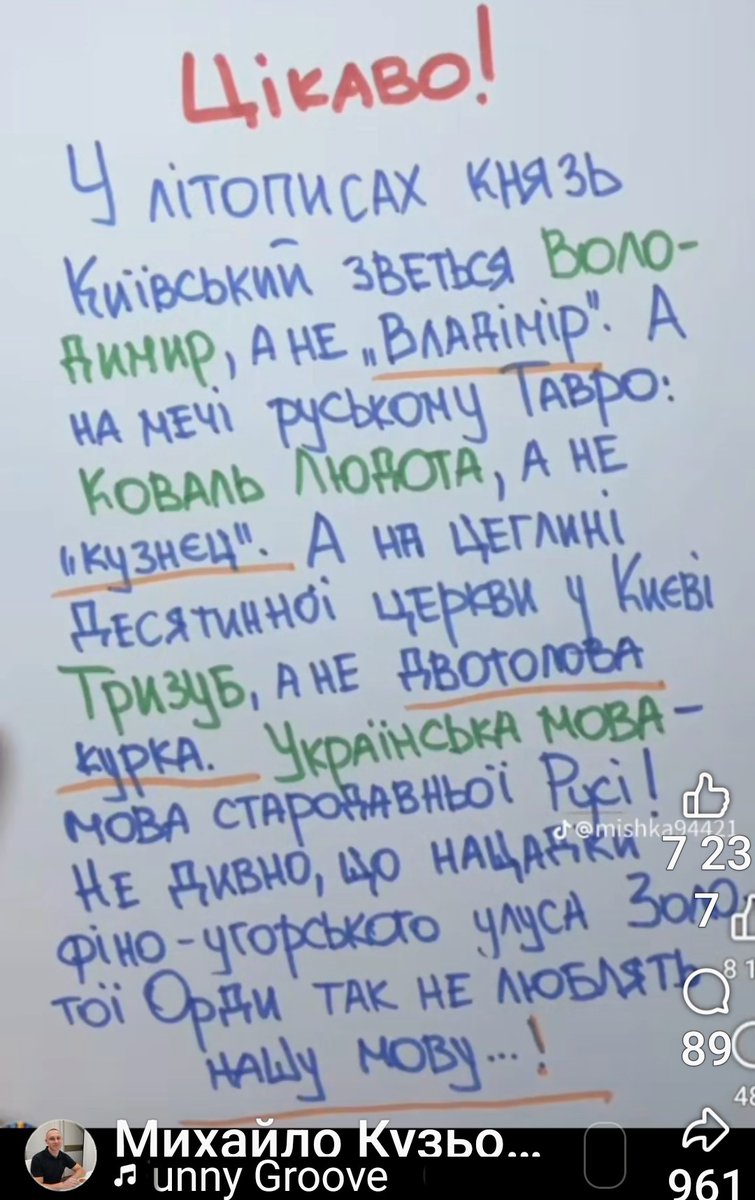 Цікаво!
У літописах князь
Київський зветься Воло-
димир, а не „Владімір". А
на мечі руському Тавро:
Коваль Людота, а не
"кузнєц". А на цеглині
Десятинної церкви у Києві
Тризуб, а не двоголова
курка. Українська мова -
мова стародавньої Русі!
@mishka94421
Не дивно, що нащадки
7 23
7
фіно-угорського улуса Золо
8 1
тої Орди так не люблять
нашу мову...!
89
48
Михайло Кузьо...
unny Groove
961